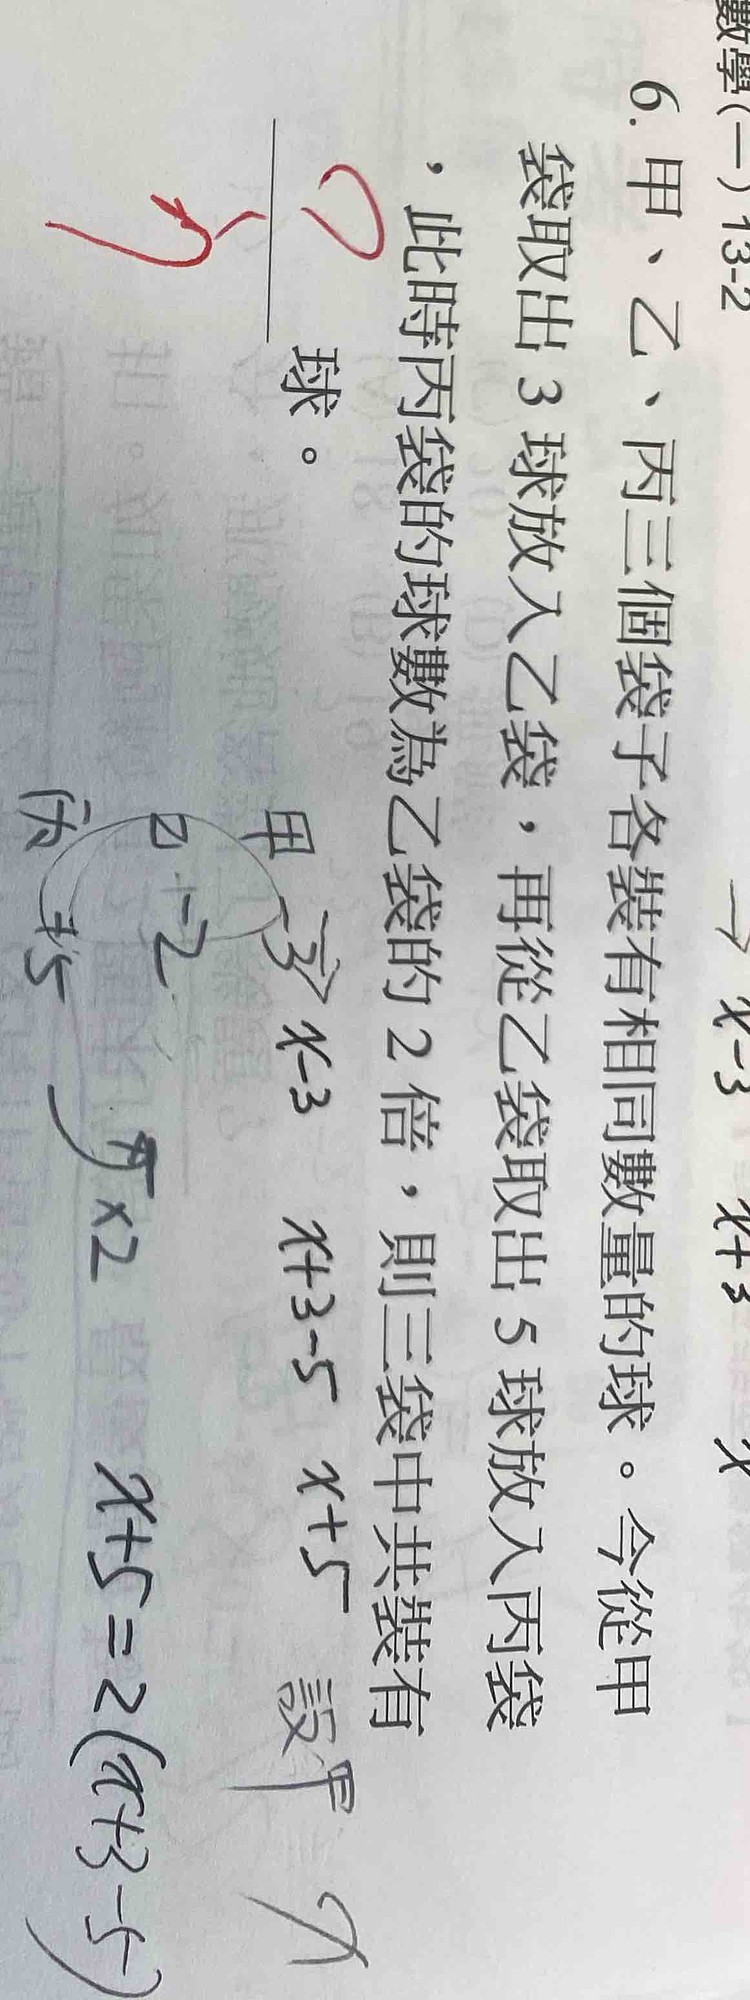 數學(一)13-2
→ x-3 x+3 x
6. 甲、乙、丙三個袋子各裝有相同數量的球。今從甲
袋取出 3 球放入乙袋，再從乙袋取出 5 球放入丙袋
，此時丙袋的球數為乙袋的 2 倍，則三袋中共裝有
球。
甲 -3 x-3 x+3-5 x+5 設甲 x
乙 -2
丙 +5 ×2 x+5=2(x+3-5)